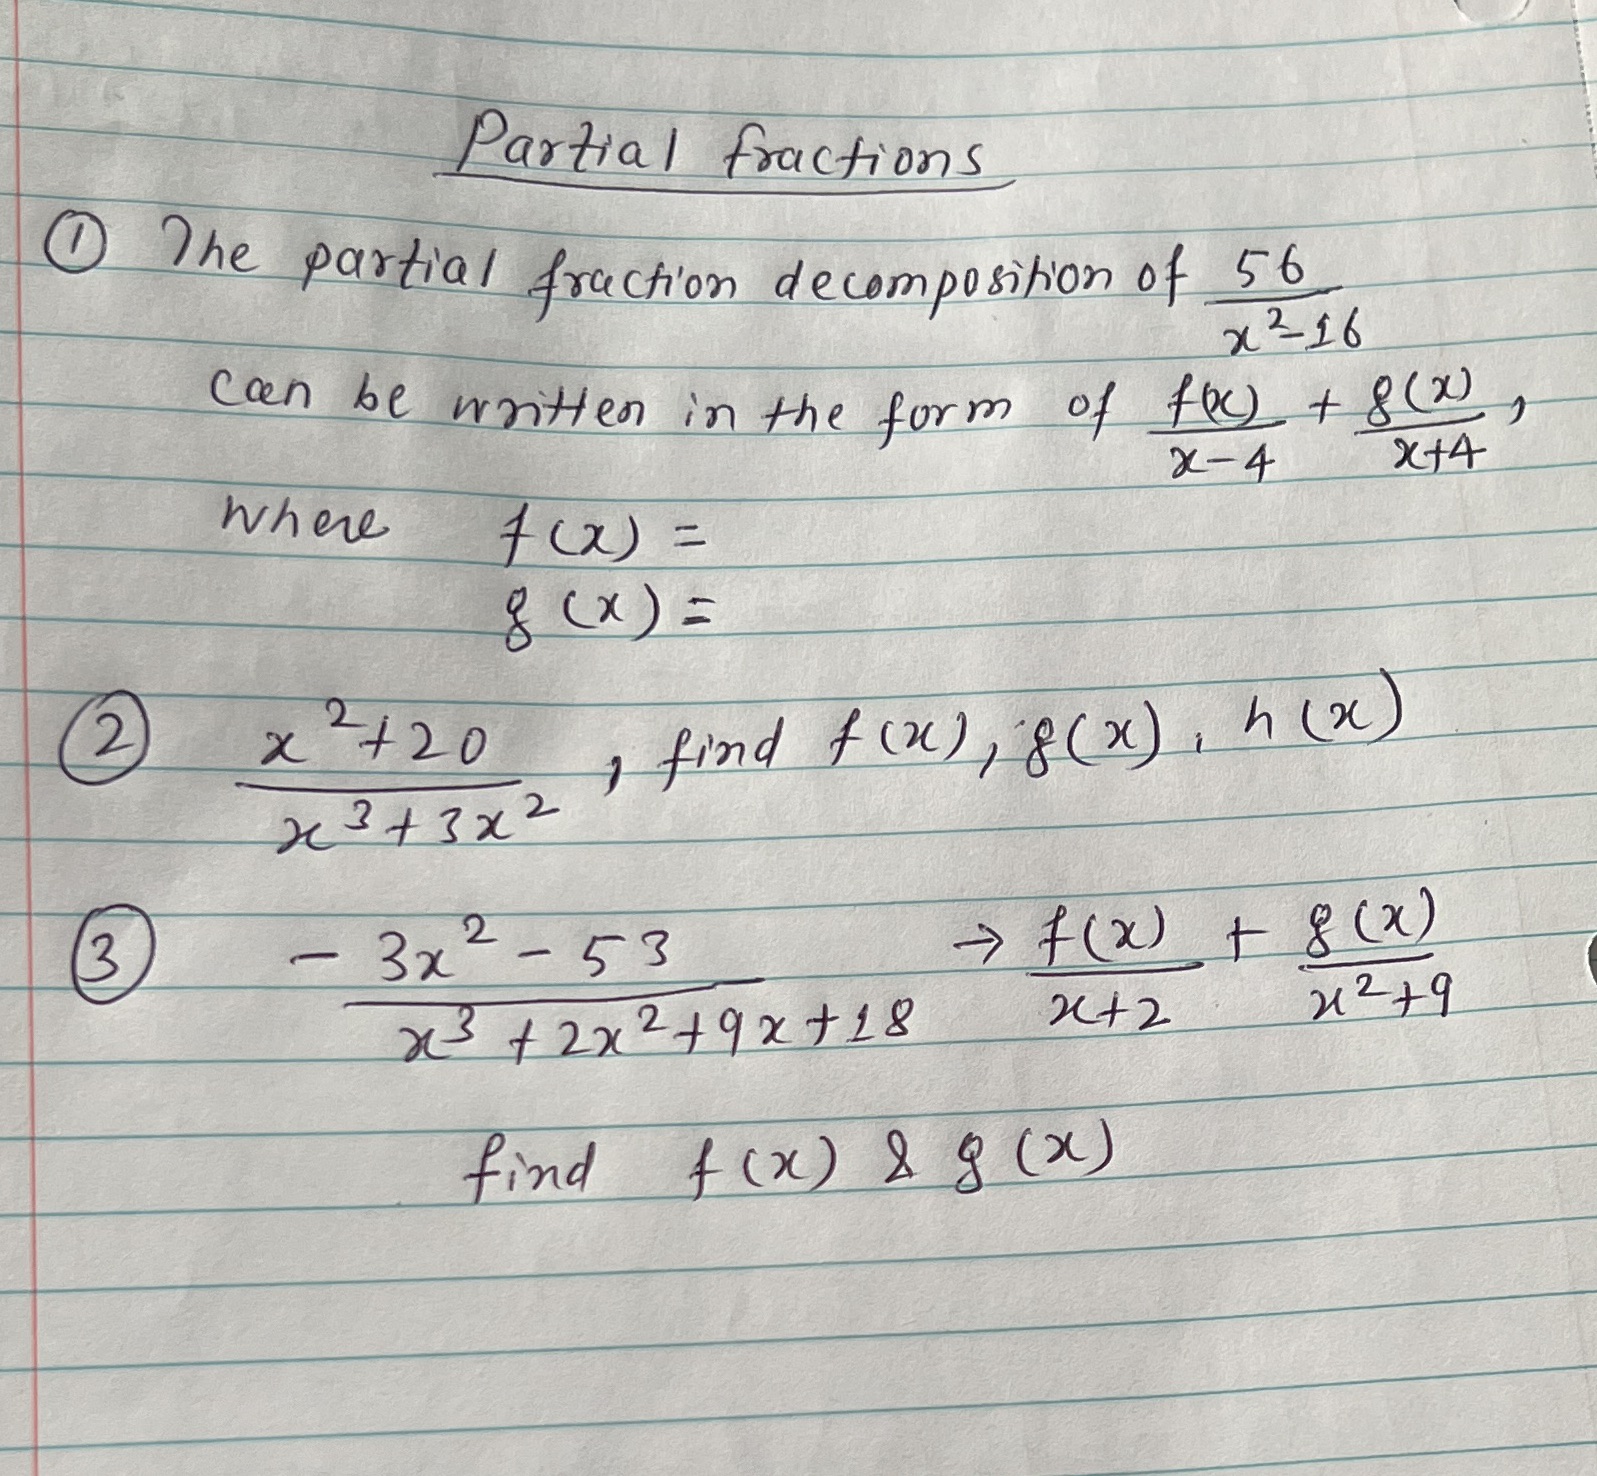 Partial fractions
① The partial fraction decomposition of 56/(x²-16)
can be written in the form of f(x)/(x-4) + g(x)/(x+4),
where f(x) =
g(x) =
② (x²+20)/(x³+3x²), find f(x), g(x), h(x)
③ (-3x²-53)/(x³+2x²+9x+18) → f(x)/(x+2) + g(x)/(x²+9)
find f(x) & g(x)